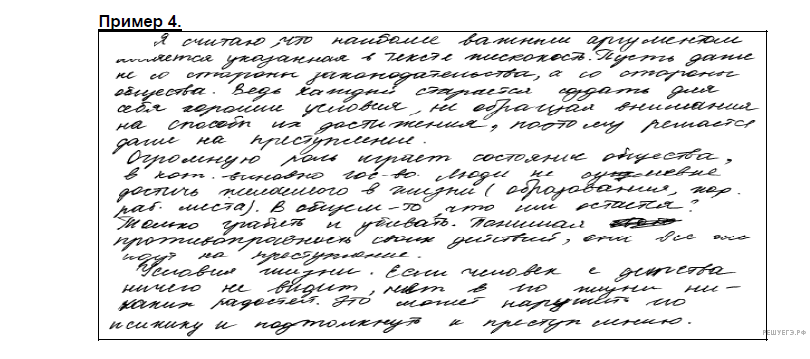 Пример 4.
Я считаю, что наиболее важным аргументом
является указанная в тексте жестокость. Пусть даже
не со стороны законодательства, а со стороны
общества. Ведь каждый старается создать для
себя хорошие условия, не обращая внимания
на способы их достижения, поэтому решается
даже на преступление.
Огромную роль играет состояние общества,
в кот. виновно гос-во. Люди не
достичь желаемого в жизни (образования, хор.
раб. места). В общем-то, что им остается?
Только грабить и убивать. Понимая
противоправность своих действий, они все
идут на преступление.
Условия жизни. Если человек с детства
ничего не видит, нет в его жизни ни-
каких радостей. Это может нарушить его
психику и подтолкнуть к преступлению.
РЕШУЕГЭ.РФ